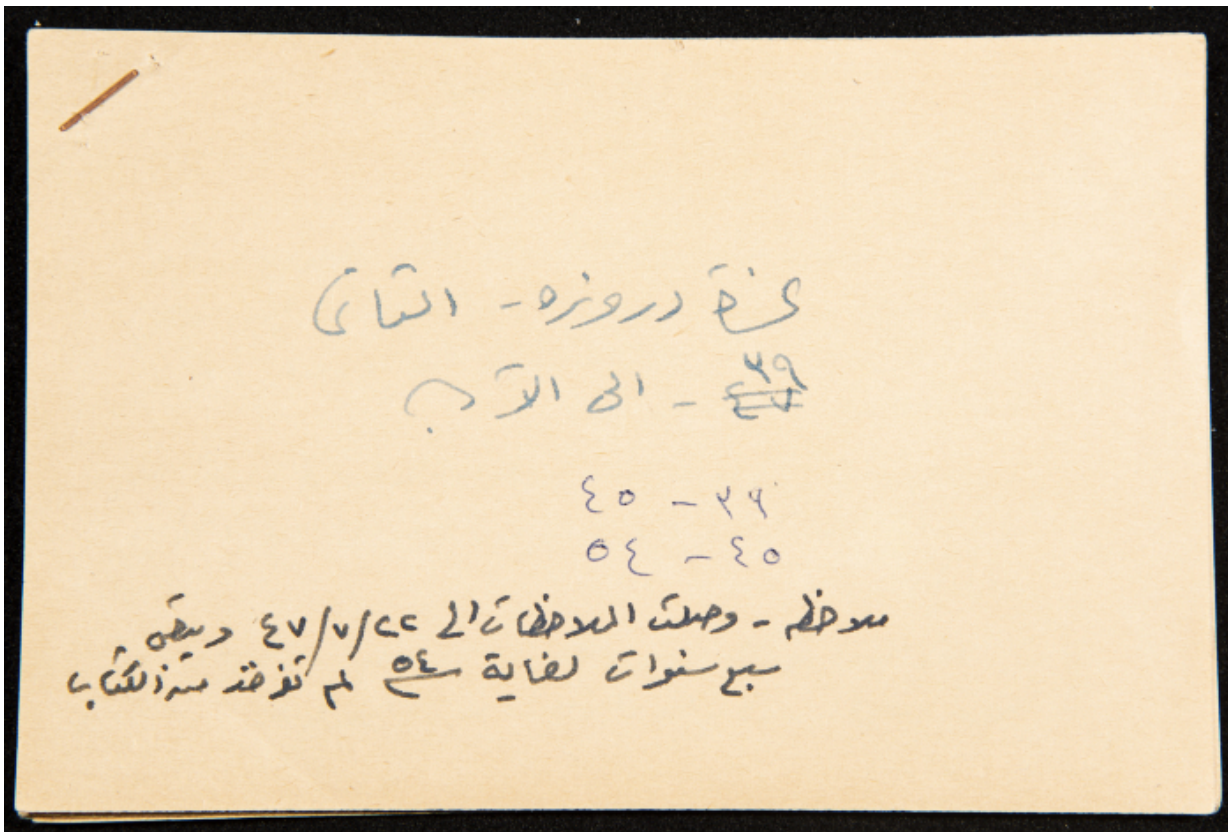 عزة دروزه - الثاني
٣٩ - الى الآن
٣٩ - ٤٥
٤٥ - ٥٤
ملاحظه - وصلت الملاحظات الى ٢٢/٧/٤٧ ويتبقى
سبع سنوات لغاية ٥٤ لم تؤخذ من الكتاب